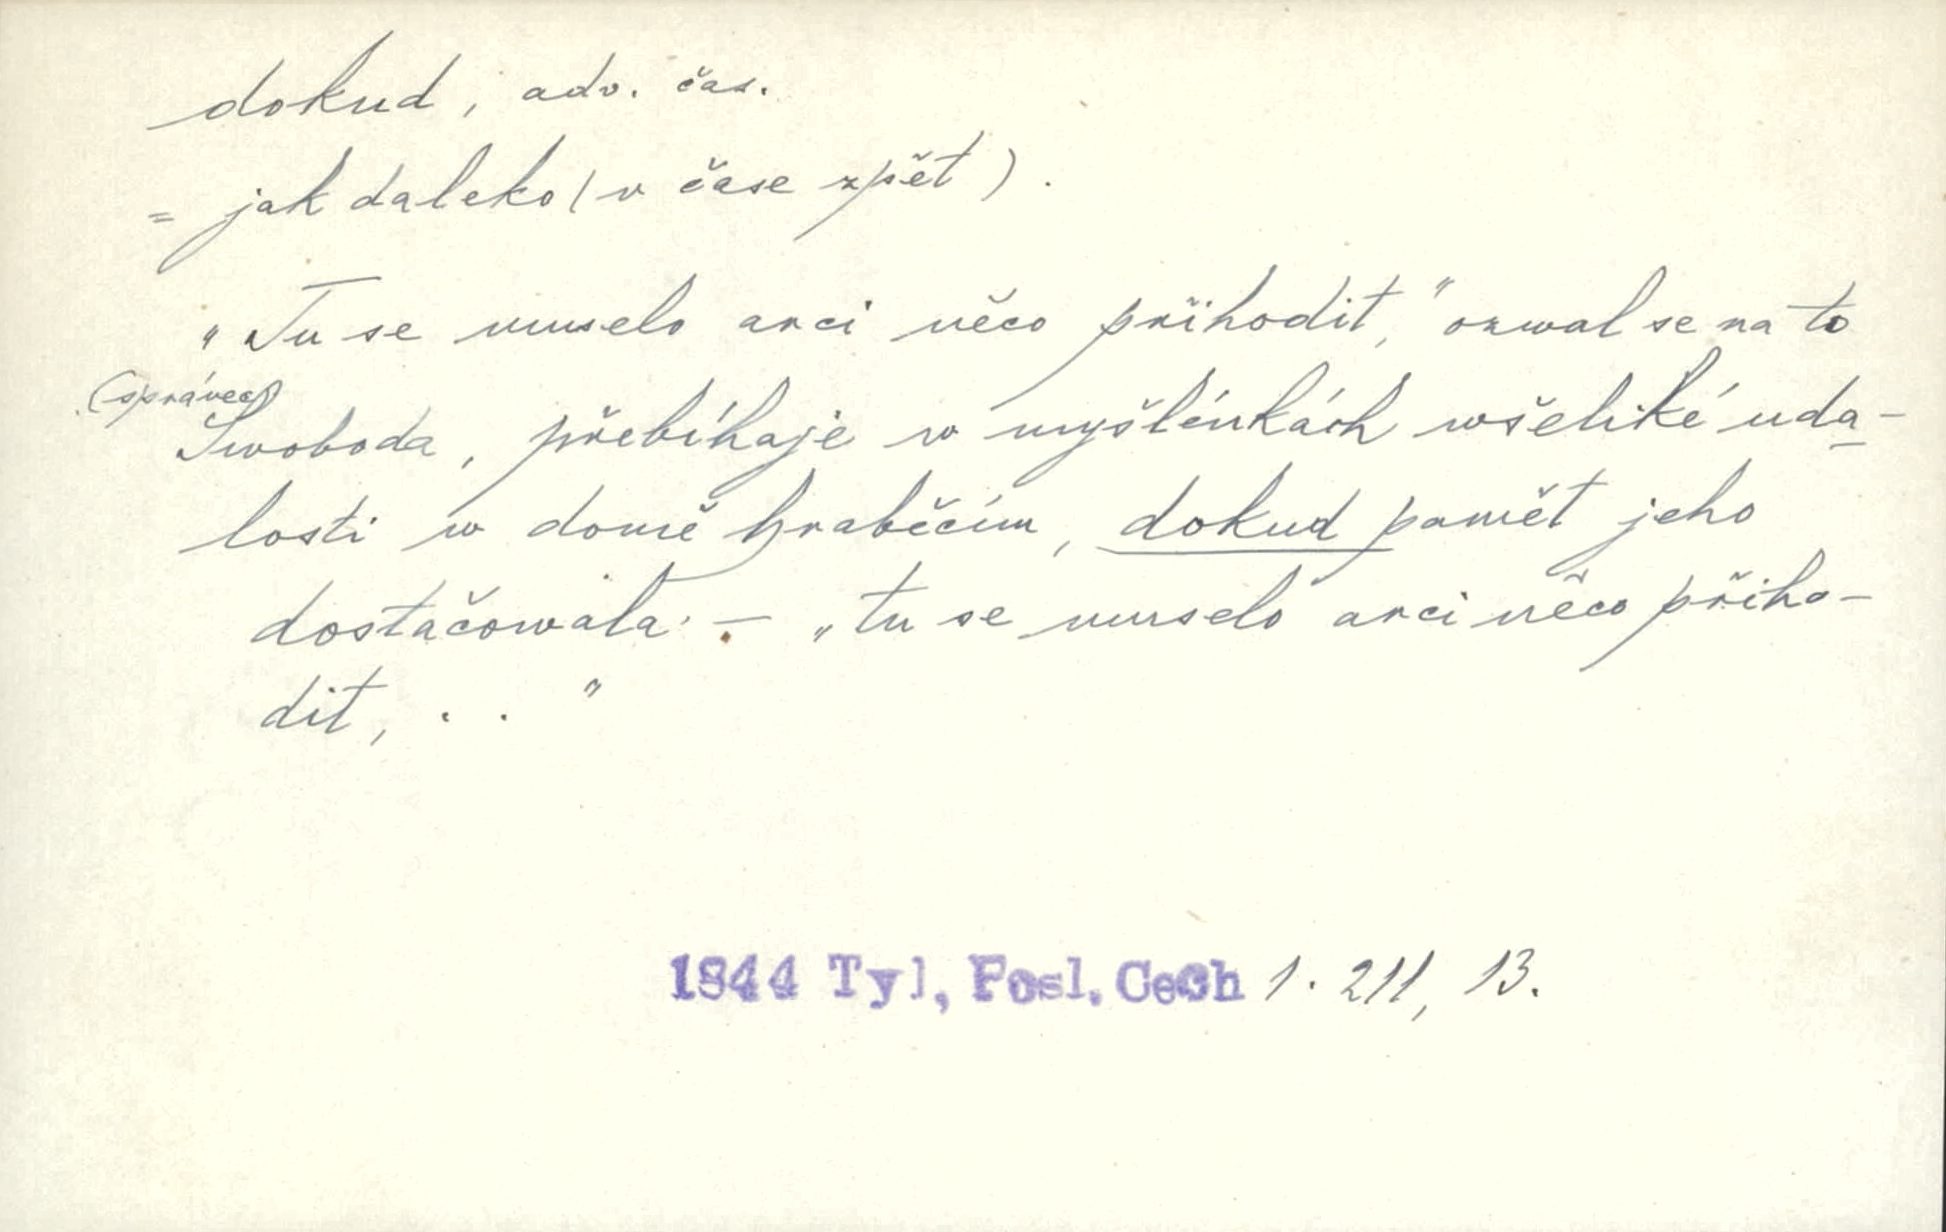 dokud, adv. čas.
= jak daleko (v čase zpět).
„Tu se muselo arci něco přihodit,“ ozwal se na to
(správec)
Swoboda, přebíhaje w myšlénkách wšeliké uda-
losti w domě hraběcím, dokud pamět jeho
dostačowala. – „tu se muselo arci něco přiho-
dit, . . “
1844 Tyl, Posl. Cech 1. 211, 13.